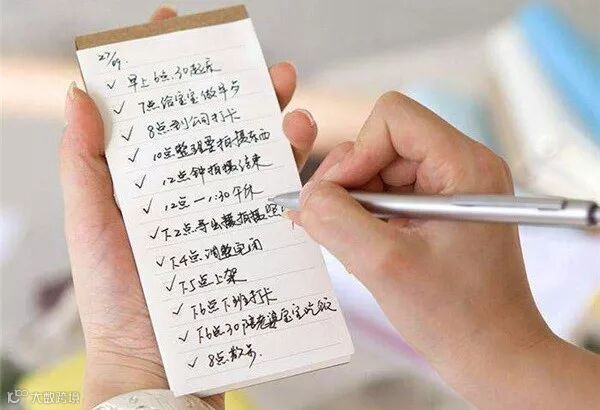 27/09.
✓ 早上6点30起床
✓ 7点给宝宝做早点
✓ 8点到公司打卡
✓ 10点整理要拍摄东西
✓ 12点钟拍摄结束
✓ 12点一1:30午休
✓ 下2点导出拍摄照
✓ 下4点调整
✓ 下5点上架
✓ 下6点下班打卡
✓ 下6点30陪老婆宝宝吃饭
✓ 8点散步.
大数跨境